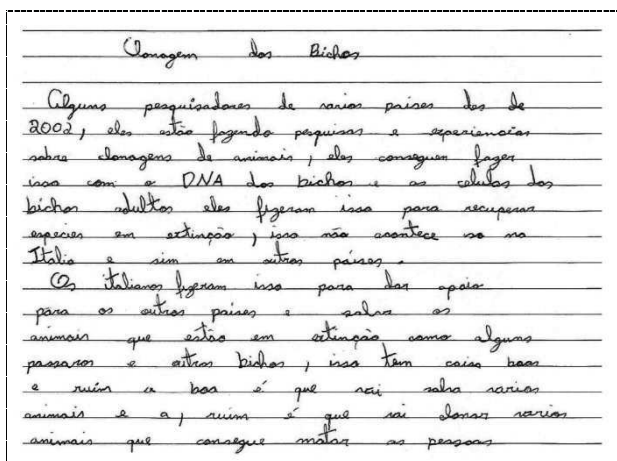 Clonagem dos Bichos
Alguns pesquisadores de varios paises des de
2002, eles estão fazendo pesquisas e experiencias
sobre clonagens de animais, eles conseguen fazer
isso com o DNA dos bichos e as celulas dos
bichos adultos eles fizeram isso para recuperar
especies em extinção, isso não acontece so na
Italia e sim em outros países.
Os italianos fizeram isso para dar apoio
para os outros paises e salvar os
animais que estão em extinção como alguns
passaros e outros bichos, isso tem coisa boas
e ruim a boa é que vai salva varios
animais e a, ruim é que vai clonar varios
animais que consegue matar as pessoas